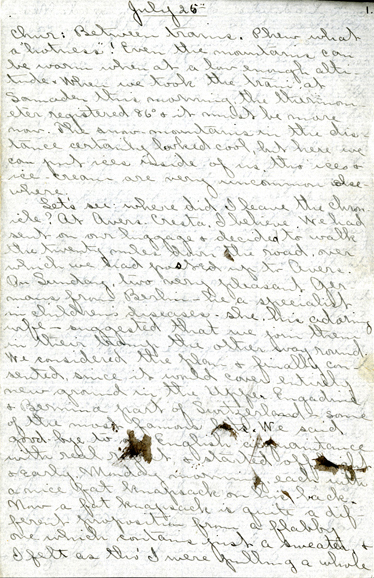 July 26th 1.
Chur: Between trains. Phew what
"hotness"! Even the mountains can
be warm when at a low enough alti-
tude. When we took the train at
Samaden this morning the thermom-
eter registered 86° & it must be more
now. The snow mountains in the dis-
tance certainly looked cool, but here we
can put ices inside of us, tho ices &
ice cream are very uncommon else-
where.
Let's see, where did I leave the Chron-
icle? At Avers-Cresta, I believe. We had
sent on our luggage & decided to walk
the twenty miles down the road, over
which we had posted up to Avers.
On Sunday, two very pleasant Ger-
mans from Berlin, he a specialist
in children's diseases - she his adoring
wife - suggested that we join them
in their tramp the other way round.
We considered the plan & finally con-
sented, since it would cover entirely
new ground in the Upper Engadine
& Bernina part of Switzerland & some
of the most famous bits. We said
good-bye to our English acquaintances
with real & started off
early Monday morning each with
a nice fat knapsack on his back.
Now a fat knapsack is quite a dif-
ferent proposition from a flabby
one which contains just a sweater, &
I felt as tho' I were pulling a whole